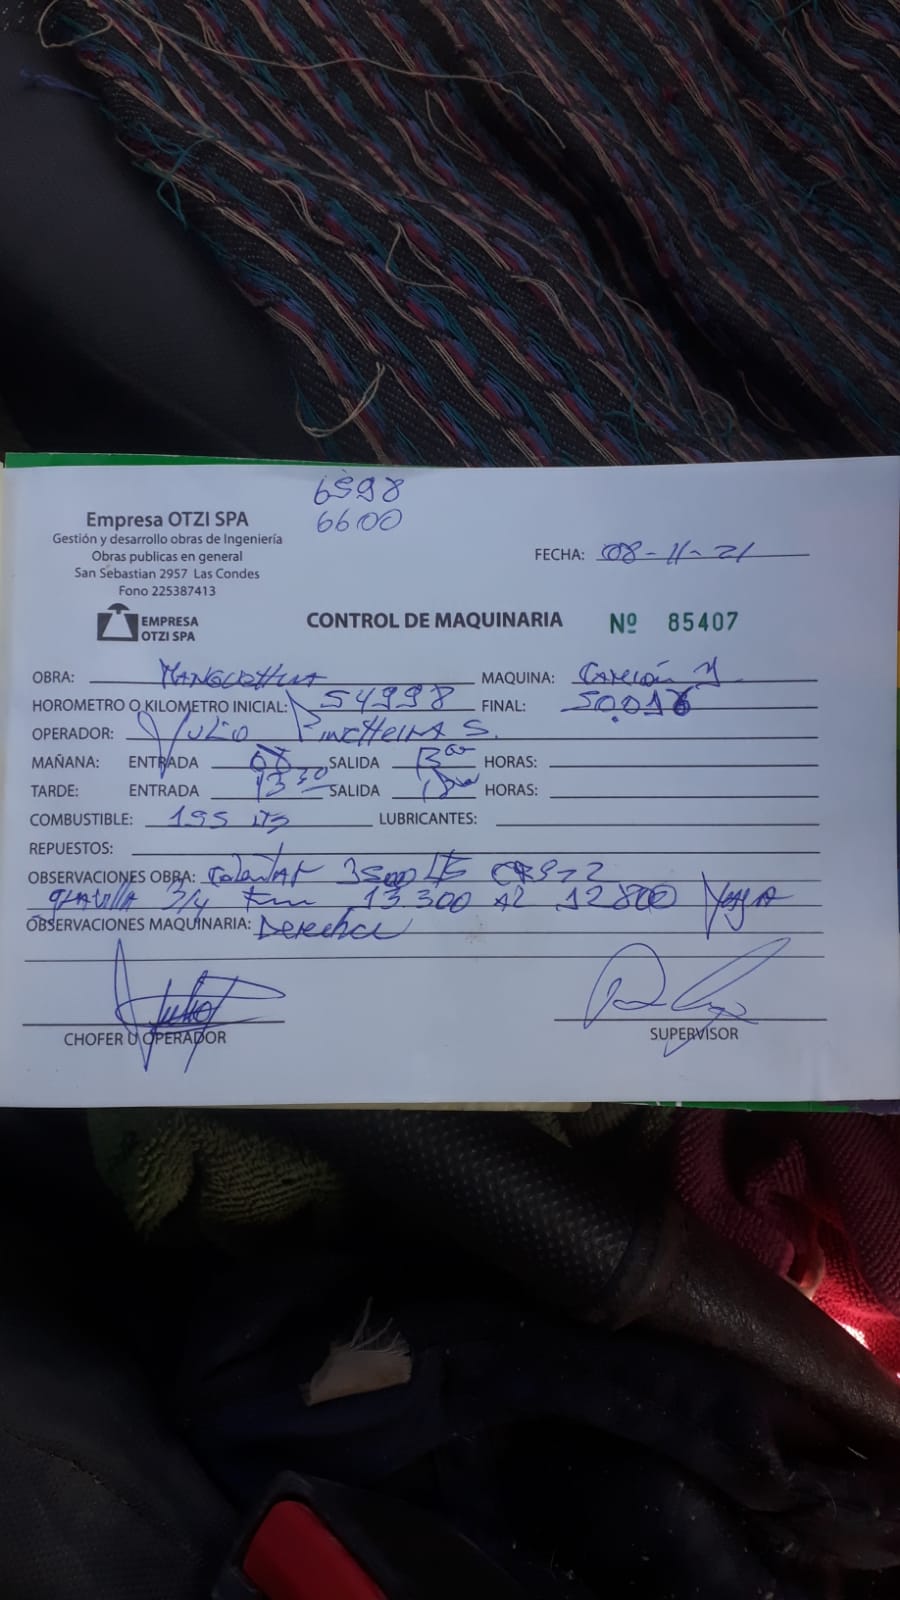 6598
6600
Empresa OTZI SPA
Gestión y desarrollo obras de Ingeniería
Obras publicas en general
San Sebastian 2957 Las Condes
Fono 225387413
FECHA: 08-11-21
EMPRESA
OTZI SPA
CONTROL DE MAQUINARIA Nº 85407
OBRA: MAQUINA: Camión
HOROMETRO O KILOMETRO INICIAL: 54998 FINAL: 50.016
OPERADOR: Julio Pincheira S.
MAÑANA: ENTRADA 08 SALIDA 13 00 HORAS:
TARDE: ENTRADA 13 30 SALIDA 18 HORAS:
COMBUSTIBLE: 195 LTS LUBRICANTES:
REPUESTOS:
OBSERVACIONES OBRA: 3500 LTS CRS-2
gravilla 3/4 Km 13.300 AL 12800
OBSERVACIONES MAQUINARIA: Derecha
CHOFER U OPERADOR
SUPERVISOR